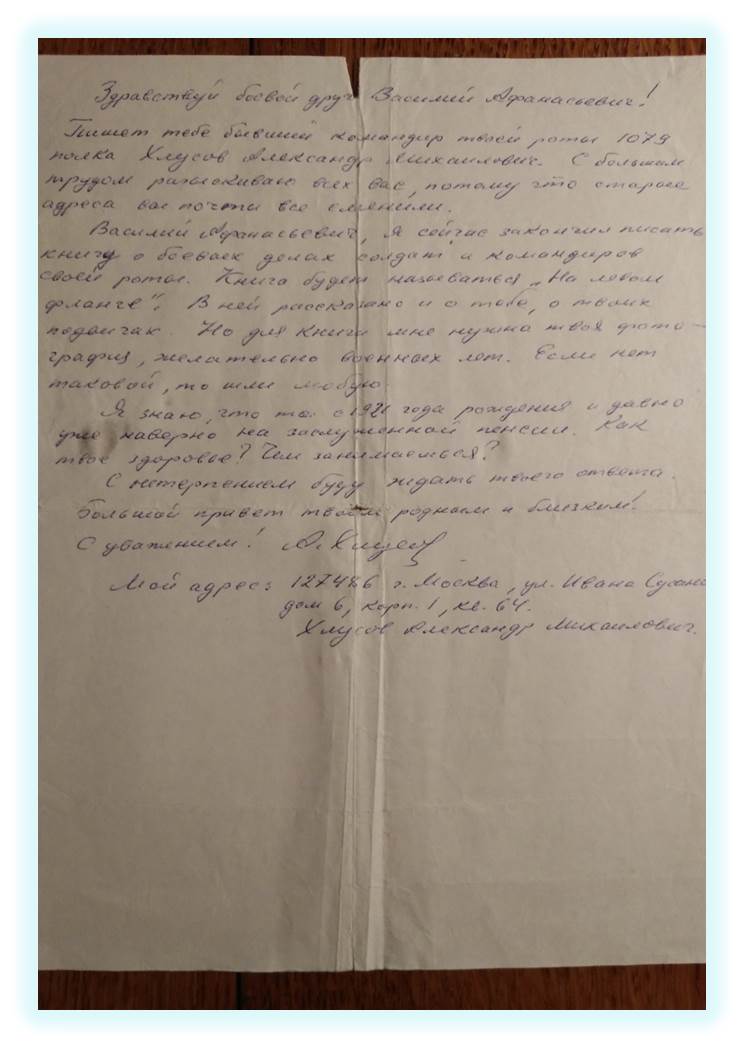 Здравствуй боевой друг Василий Афанасьевич!
Пишет тебе бывший командир твоей роты 1079
полка Хлусов Александр Михайлович. С большим
трудом разыскиваю всех вас, потому что старые
адреса вы почти все сменили.
Василий Афанасьевич, я сейчас закончил писать
книгу о боевых делах солдат и командиров
своей роты. Книга будет называться „На левом
фланге". В ней рассказано и о тебе, о твоих
подвигах. Но для книги мне нужна твоя фото-
графия, желательно военных лет. Если нет
таковой, то шли любую.
Я знаю, что ты с 1921 года рождения и давно
уже наверно на заслуженной пенсии. Как
твое здоровье? Чем занимаешься?
С нетерпением буду ждать твоего ответа.
Большой привет твоим родным и близким!
С уважением! А. Хлусов
Мой адрес: 127486 г. Москва, ул. Ивана Сусани
дом 6, корп. 1, кв. 64.
Хлусов Александр Михайлович.